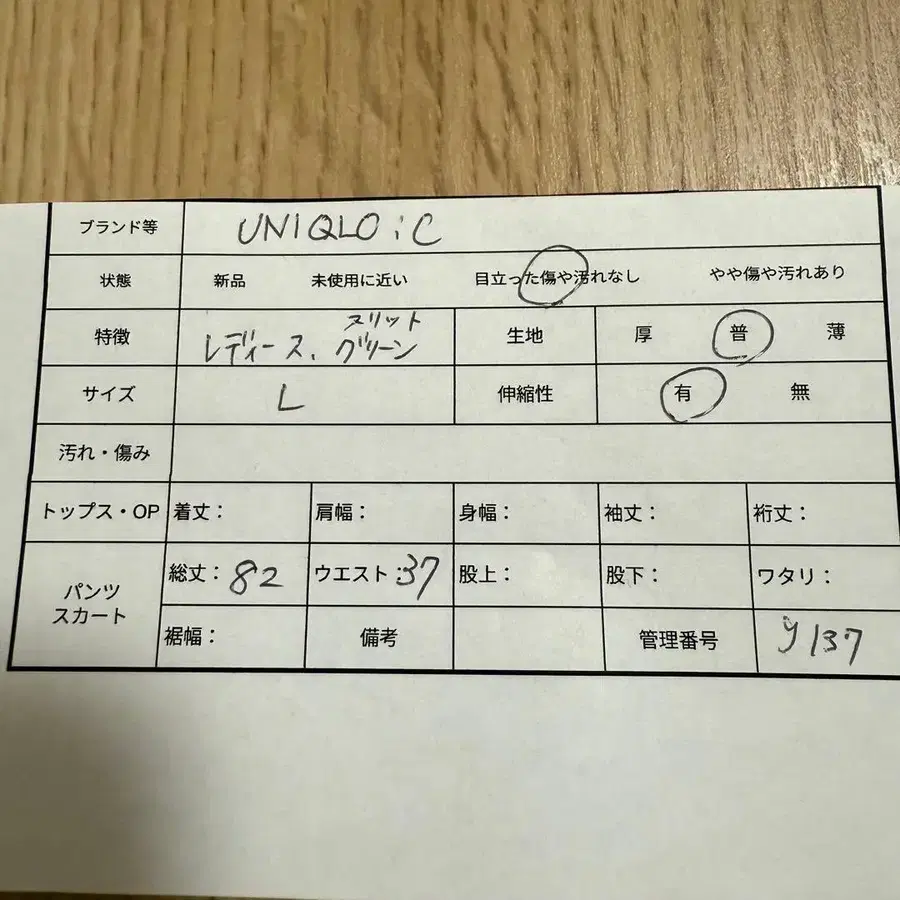 ブランド等 UNIQLO:C
状態 新品 未使用に近い 目立った傷や汚れなし やや傷や汚れあり
特徴 レディース、スリット グリーン 生地 厚 普 薄
サイズ L 伸縮性 有 無
汚れ・傷み
トップス・OP 着丈: 肩幅: 身幅: 袖丈: 裄丈:
パンツ スカート 総丈:82 ウエスト:37 股上: 股下: ワタリ:
裾幅: 備考 管理番号 y137